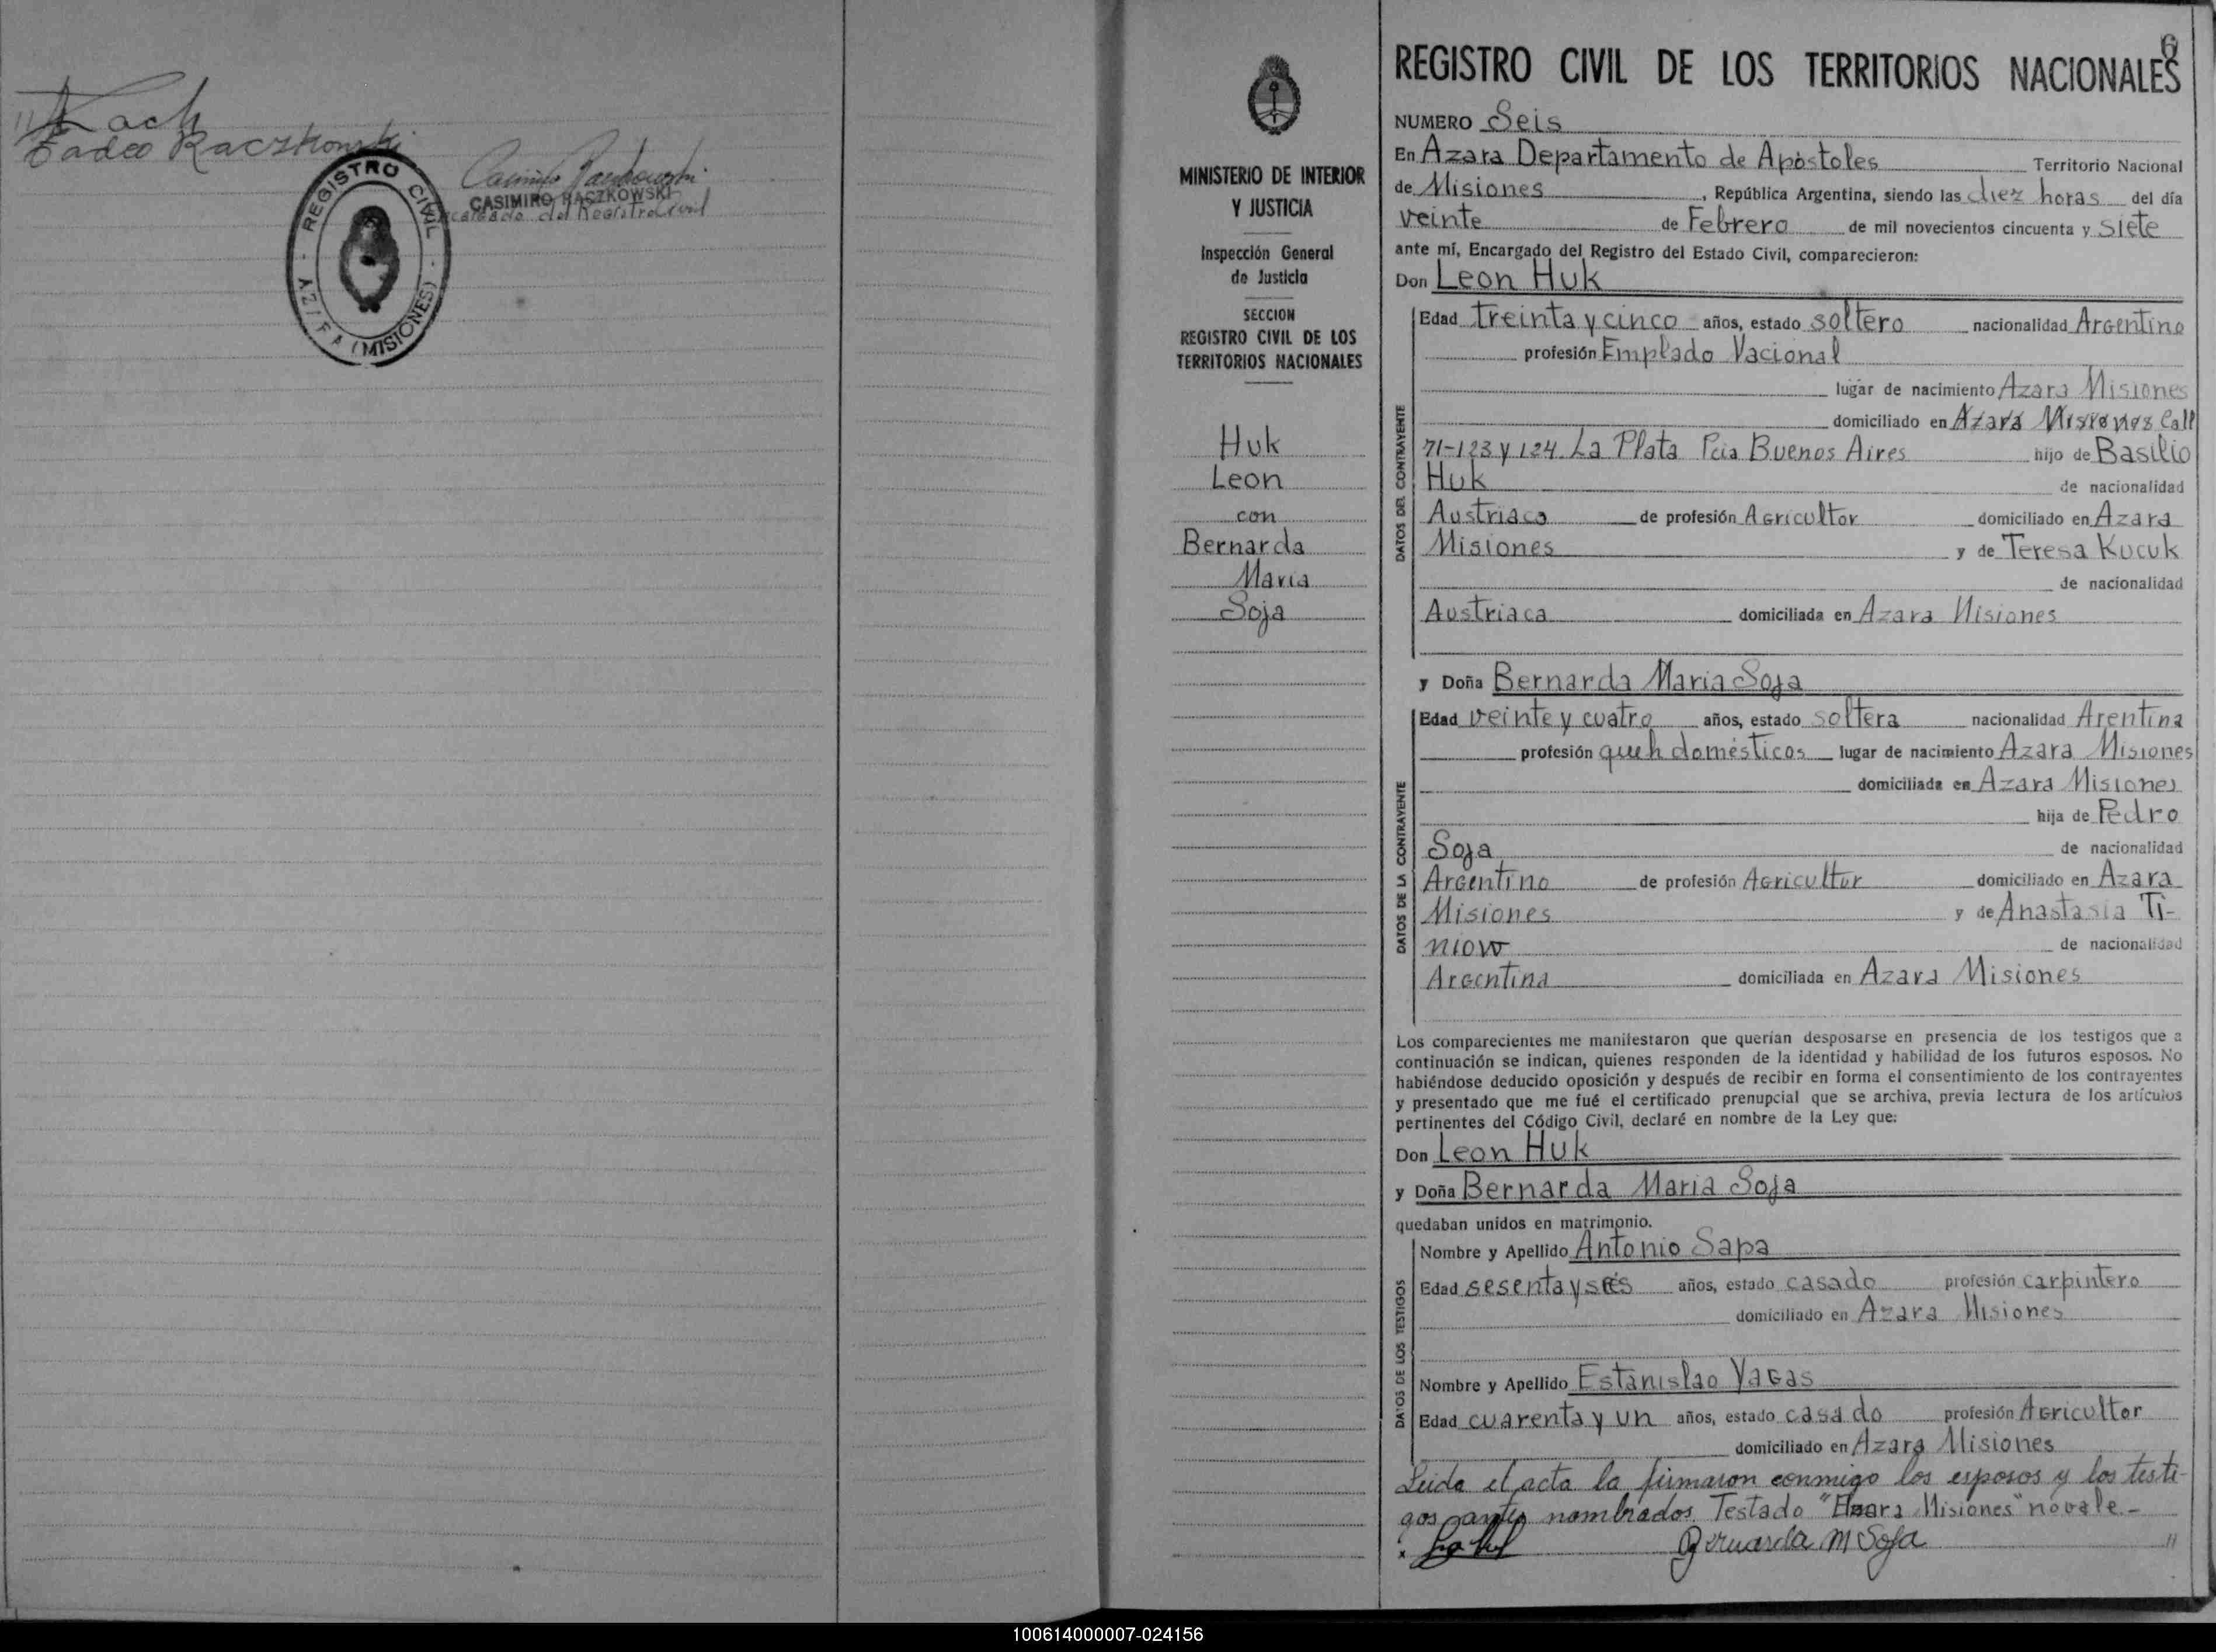 Kach
Tadeo Raczkowski
Casimiro Raczkowski
CASIMIRO RACZKOWSKI
Encargado del Registro Civil
REGISTRO CIVIL
AZARA (MISIONES)
MINISTERIO DE INTERIOR
Y JUSTICIA
Inspección General
de Justicia
SECCION
REGISTRO CIVIL DE LOS
TERRITORIOS NACIONALES
Huk
Leon
con
Bernarda
Maria
Soja
6
REGISTRO CIVIL DE LOS TERRITORIOS NACIONALES
NUMERO Seis
En Azara Departamento de Apóstoles Territorio Nacional
de Misiones, República Argentina, siendo las diez horas del día
veinte de Febrero de mil novecientos cincuenta y siete
ante mí, Encargado del Registro del Estado Civil, comparecieron:
Don Leon Huk
DATOS DEL CONTRAYENTE
Edad treinta y cinco años, estado soltero nacionalidad Argentino
profesión Emplado Nacional
lugar de nacimiento Azara Misiones
domiciliado en Azara Misiones Call
71-123 y 124 La Plata Pcia Buenos Aires hijo de Basilio
Huk de nacionalidad
Austriaco de profesión Agricultor domiciliado en Azara
Misiones y de Teresa Kucuk
de nacionalidad
Austriaca domiciliada en Azara Misiones
y Doña Bernarda Maria Soja
DATOS DE LA CONTRAYENTE
Edad veinte y cuatro años, estado soltera nacionalidad Arentina
profesión queh domésticos lugar de nacimiento Azara Misiones
domiciliada en Azara Misiones
hija de Pedro
Soja de nacionalidad
Argentino de profesión Agricultor domiciliado en Azara
Misiones y de Anastasia Ti-
niow de nacionalidad
Argentina domiciliada en Azara Misiones
Los comparecientes me manifestaron que querían desposarse en presencia de los testigos que a
continuación se indican, quienes responden de la identidad y habilidad de los futuros esposos. No
habiéndose deducido oposición y después de recibir en forma el consentimiento de los contrayentes
y presentado que me fué el certificado prenupcial que se archiva, previa lectura de los artículos
pertinentes del Código Civil, declaré en nombre de la Ley que:
Don Leon Huk
y Doña Bernarda Maria Soja
quedaban unidos en matrimonio.
DATOS DE LOS TESTIGOS
Nombre y Apellido Antonio Sapa
Edad sesenta y seis años, estado casado profesión carpintero
domiciliado en Azara Misiones
Nombre y Apellido Estanislao Yagas
Edad cuarenta y un años, estado casado profesión Agricultor
domiciliado en Azara Misiones
Leida el acta la firmaron conmigo los esposos y los testi-
gos antes nombrados. Testado "Azara Misiones" no vale.-
Bernarda M Soja
100614000007-024156